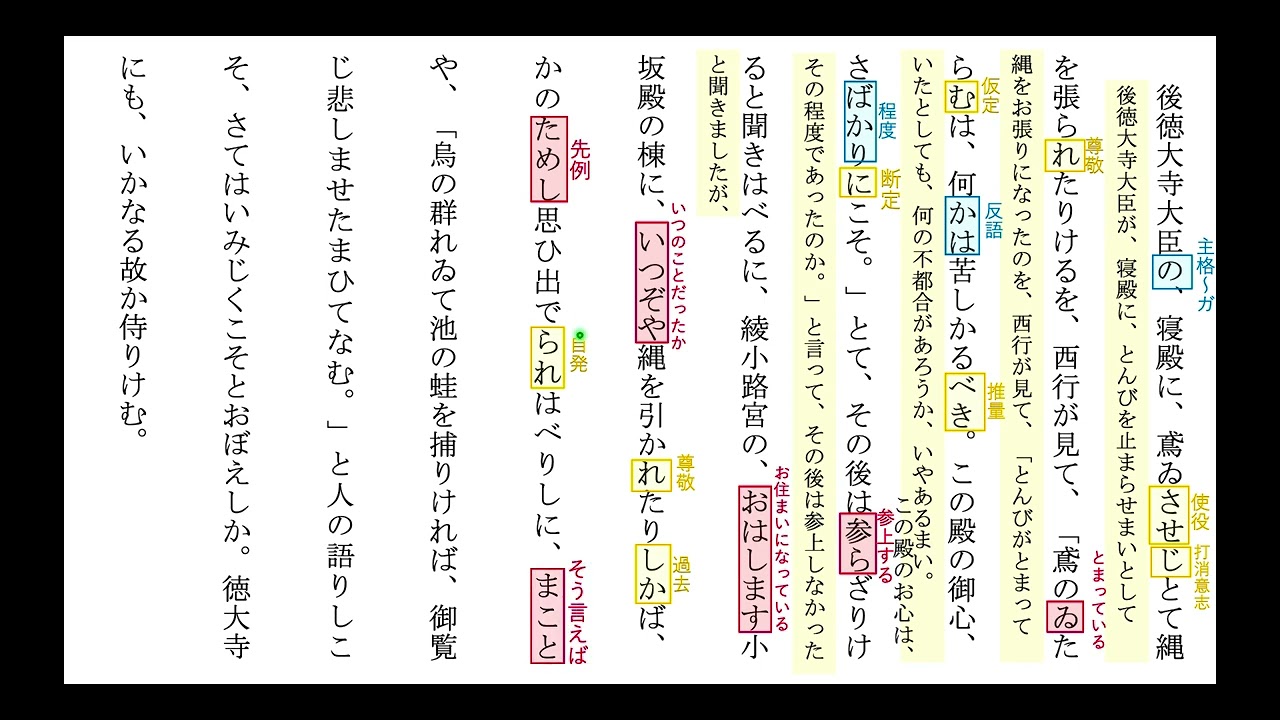 主格～ガ
後徳大寺大臣の、寝殿に、鳶ゐさせじとて縄
使役
打消意志
後徳大寺大臣が、寝殿に、とんびを止まらせまいとして
尊敬
とまっている
を張られたりけるを、西行が見て、「鳶のゐた
縄をお張りになったのを、西行が見て、「とんびがとまって
仮定
反語
推量
らむは、何かは苦しかるべき。この殿の御心、
いたとしても、何の不都合があろうか、いやあるまい。
この殿のお心は、
程度
断定
参上する
さばかりにこそ。」とて、その後は参らざりけ
その程度であったのか。」と言って、その後は参上しなかった
お住まいになっている
ると聞きはべるに、綾小路宮の、おはします小
と聞きましたが、
いつのことだったか
尊敬
過去
坂殿の棟に、いつぞや縄を引かれたりしかば、
先例
自発
そう言えば
かのためし思ひ出でられはべりしに、まこと
や、「烏の群れゐて池の蛙を捕りければ、御覧
じ悲しませたまひてなむ。」と人の語りしこ
そ、さてはいみじくこそとおぼえしか。徳大寺
にも、いかなる故か侍りけむ。